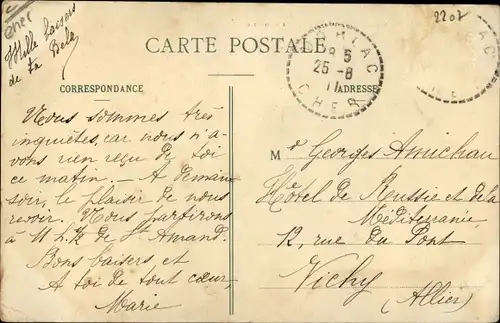 cher
2207
Mille baisers
de ta Bela
CARTE POSTALE
25-8
11
CHER
CORRESPONDANCE
ADRESSE
Nous sommes très
inquiètes, car nous n'a-
vons rien reçu de toi
ce matin. — A demain
soir, le plaisir de nous
revoir. Nous partirons
à 11 h. ½ de St Amand.
Bons baisers et
A toi de tout cœur
Marie
Mr Georges Amichau
Hôtel de Russie et de la
Méditerranée
12, rue du Pont
Vichy
(Allier)